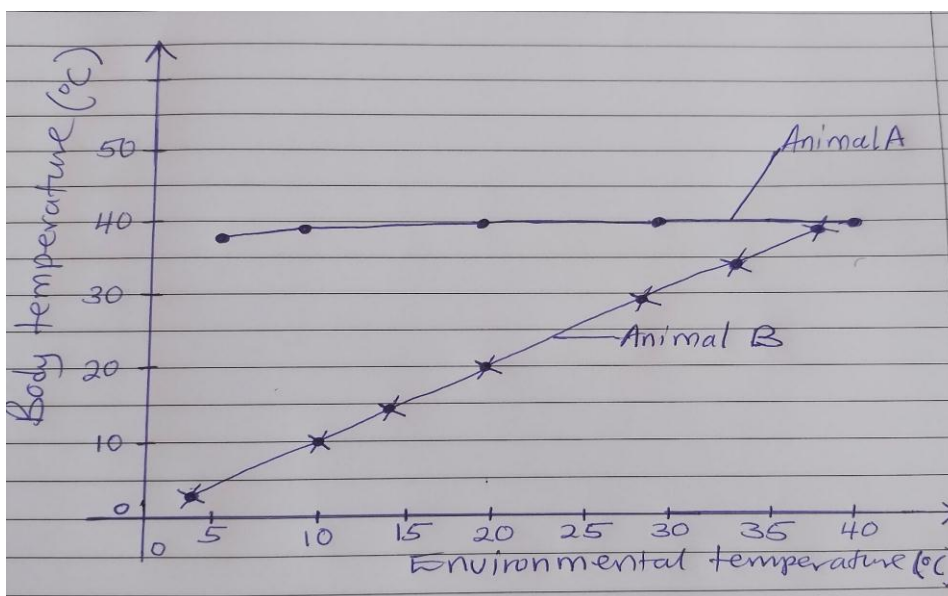 Body temperature (°C)
50
40
30
20
10
0
Animal A
Animal B
0 5 10 15 20 25 30 35 40
Environmental temperature (°C